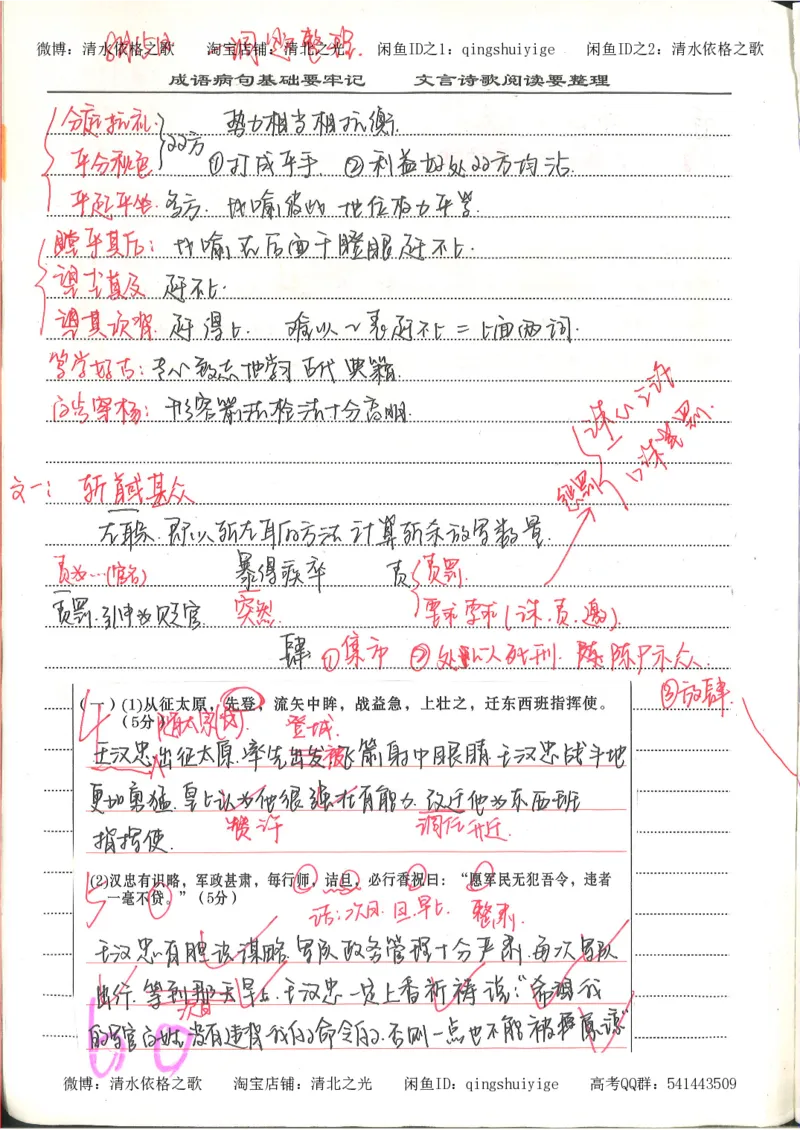 微博：清水依格之歌 淘宝店铺：清北之光 闲鱼ID之1：qingshuiyige 闲鱼ID之2：清水依格之歌
整理
成语病句基础要牢记 文言诗歌阅读要整理
分庭抗礼 势力相当相抗衡.
双方
平分秋色 ①打成平手 ②利益好处双方均沾.
平起平坐. 多方. 比喻彼此地位权力平等.
瞠乎其后： 比喻在后面干瞪眼赶不上.
望尘莫及 赶不上.
望其项背. 赶得上. 难以~表赶不上=上面两词.
笃学好古：专心致志地学习古代典籍.
百步穿杨：形容箭法枪法十分高明.
诛心之论
口诛笔伐.
惩罚
文一：斩馘甚众
左耳. 即以斩左耳的方法计算斩杀敌军数量.
责为…(官名) 暴得疾卒 责 责罚.
责罚.引申为贬官. 突然. 要求 索求(诛.责.邀).
肆 ①集市 ②处以死刑. 陈尸示众.
③放肆.
(一)(1)从征太原，先登，流矢中眸，战益急，上壮之，迁东西班指挥使。
(5分)
随太原 登城.
王汉忠出征太原.率先出发被飞箭射中眼睛.王汉忠战斗地
更加勇猛.皇上认为他很强壮有能力.改迁他为东西班
赞许 调任 升迁.
指挥使.
(2)汉忠有识略，军政甚肃，每行师，诘旦，必行香祝曰：“愿军民无犯吾令，违者
一毫不贷。”（5分）
诘：次日.旦.早上. 整肃.
王汉忠有胆识谋略.军队政务管理十分严肃.每次军队
出行.等到那天早上.王汉忠一定上香祈祷说：“希望我
次日
的军官百姓没有违背我的命令的.否则一点也不能被原谅”
60
微博：清水依格之歌 淘宝店铺：清北之光 闲鱼ID：qingshuiyige 高考QQ群：541443509